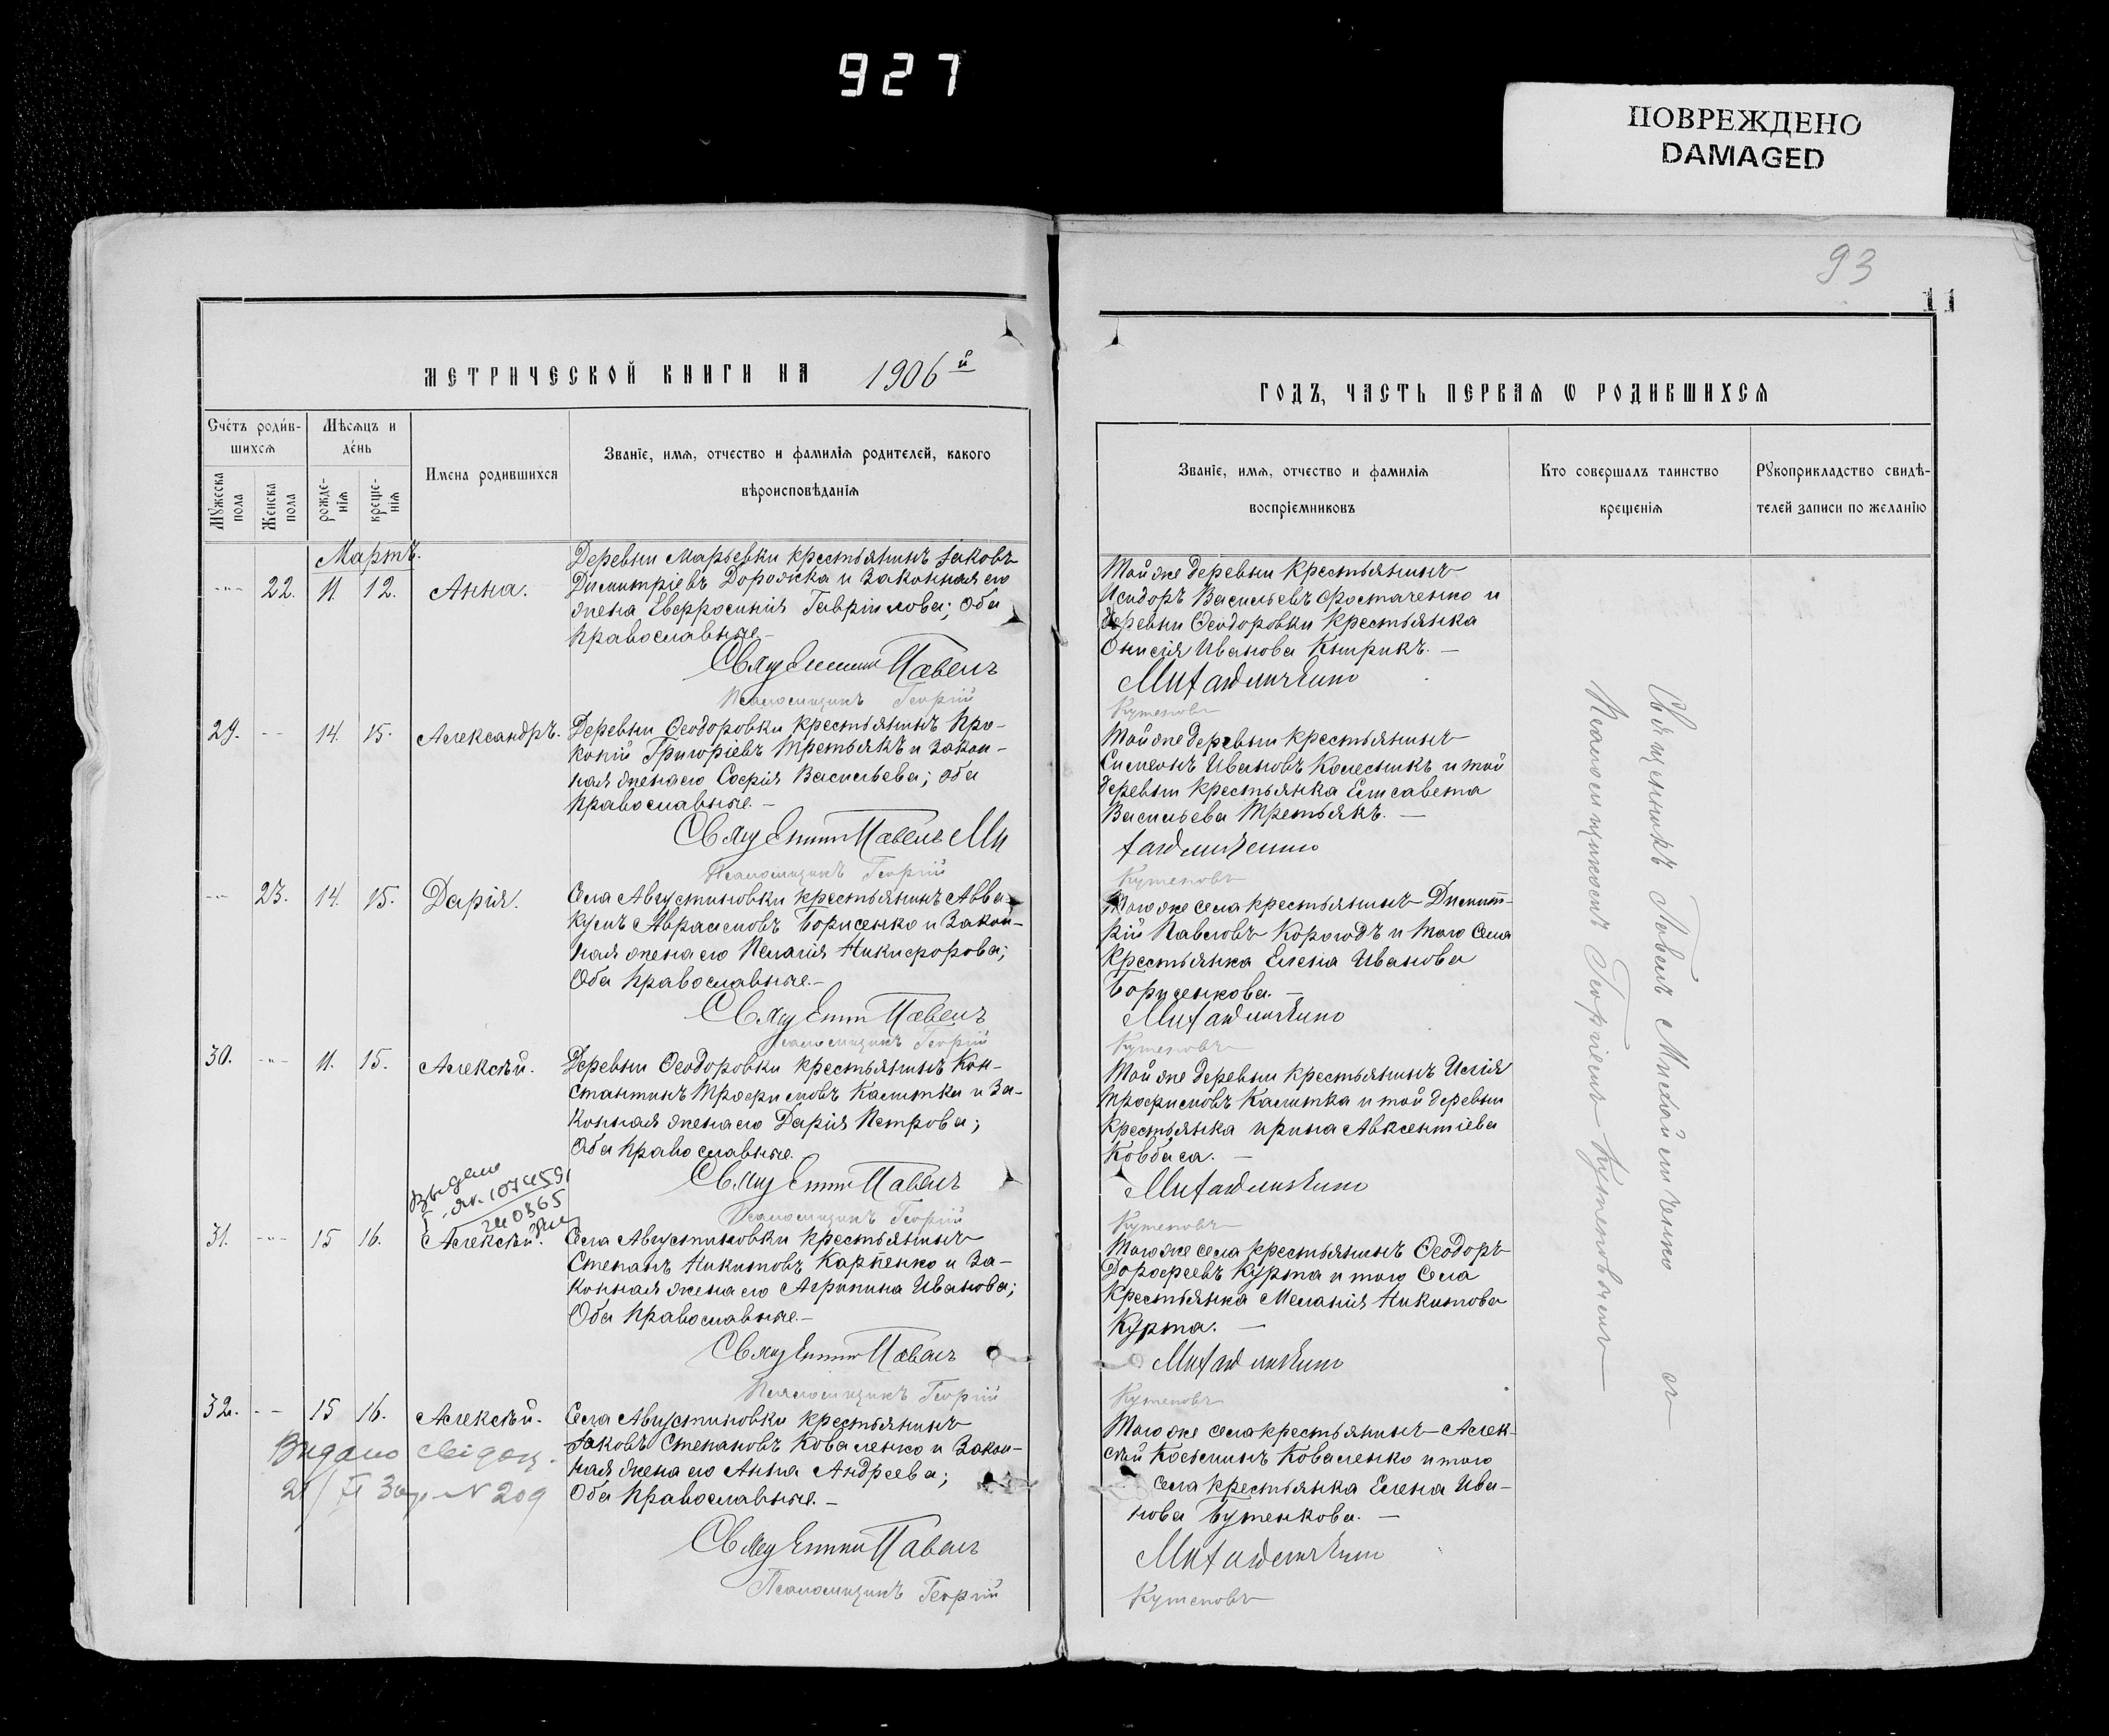 927
ПОВРЕЖДЕНО
DAMAGED
93
11
МЕТРИЧЕСКОЙ КНИГИ НА 1906й
ГОДЪ, ЧАСТЬ ПЕРВАЯ Ѡ РОДИВШИХСЯ
Счётъ родив-
шихся
Мѣсяцъ и
день
Мужеска
пола
Женска
пола
рожде-
нія
креще-
нія
Имена родившихся
Званіе, имя, отчество и фамилія родителей, какого
вѣроисповѣданія
Званіе, имя, отчество и фамилія
воспріемниковъ
Кто совершалъ таинство
крещенія
Рукоприкладство свидѣ-
телей записи по желанію
Мартъ.
22. 11. 12. Анна.
Деревни Марьевки крестьянинъ Іаковъ
Димитріевъ Дорожка и законная его
жена Евфросинія Гавріилова; оба
православные.
Священникъ Павелъ
Псаломщикъ Георгій
Той же деревни крестьянинъ
Исидоръ Васильевъ Фостаченко и
деревни Ѳеодоровки крестьянка
Онисія Иванова Кирикъ. —
Михайличенко
Кутеповъ
29. 14. 15. Александръ.
Деревни Ѳеодоровки крестьянинъ Про-
копій Григоріевъ Третьякъ и закон-
ная жена его Софія Васильева; оба
православные. —
Священникъ Павелъ Ми
Псаломщикъ Георгій
Той же деревни крестьянинъ
Симеонъ Ивановъ Колесникъ и той
деревни крестьянка Елисавета
Васильева Третьякъ. —
хайличенко
Кутеповъ
23. 14. 15. Дарія.
Села Августиновки крестьянинъ Авва-
кумъ Аврамовъ Борисенко и закон-
ная жена его Пелагія Никифорова;
Оба православные. —
Священникъ Павелъ
Псаломщикъ Георгій
Того же села крестьянинъ Димит-
рій Павловъ Корогодъ и того села
крестьянка Елена Иванова
Борисенкова. —
Михайличенко
Кутеповъ
30. 11. 15. Алексѣй.
Деревни Ѳеодоровки крестьянинъ Кон-
стантинъ Трофимовъ Калитка и за-
конная жена его Дарія Петрова;
Оба православные.
Священникъ Павелъ
Псаломщикъ Георгій
Той же деревни крестьянинъ Илія
Трофимовъ Калитка и той деревни
крестьянка Ирина Авксентіева
Ковбаса. —
Михайличенко
Кутеповъ
31. 15 16. Алексѣй.
Села Августиновки крестьянинъ
Стефанъ Никитовъ Карпенко и за-
конная жена его Агрипина Иванова;
Оба православные. —
Священникъ Павелъ
Псаломщикъ Георгій
Того же села крестьянинъ Ѳеодоръ
Дорофеевъ Курта и того села
крестьянка Меланія Никитова
Курта. —
Михайличенко
Кутеповъ
32. 15 16. Алексѣй.
Видано свідоц.
21/VI Зар № 209
Села Августиновки крестьянинъ
Іаковъ Стефановъ Коваленко и закон-
ная жена его Анна Андреева;
Оба православные. —
Священникъ Павелъ
Псаломщикъ Георгій
Того же села крестьянинъ Алек-
сѣй Косьминъ Коваленко и того
села крестьянка Елена Ива-
нова Бутенкова. —
Михайличенко
Кутеповъ
Священникъ Павелъ Михайличенко съ
Псаломщикомъ Георгіемъ Кутеповымъ